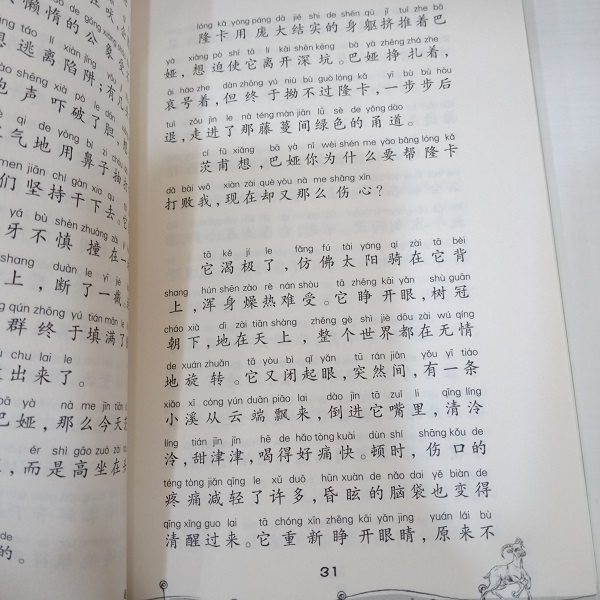 懒惰的公象
逃离陷阱；有几
声吓破了胆，
气地用鼻子抽打
们坚持干下去。它
牙不慎撞在一
上，断了一截
群终于填满了
出来了。
巴娅，那么今天
，而是高坐在
的。
lóng kǎ yòng páng dà jiē shi de shēn qū jǐ tuī zhe bā
隆卡用庞大结实的身躯挤推着巴
yà xiǎng pò shǐ tā lí kāi shēn kēng bā yà zhēng zhá zhe
娅，想迫使它离开深坑。巴娅挣扎着，
āi háo zhe dàn zhōng yú niù bú guò lóng kǎ yí bù bù hòu
哀号着，但终于拗不过隆卡，一步步后
tuì zǒu jìn le nà téng màn jiān lǜ sè de yǒng dào
退，走进了那藤蔓间绿色的甬道。
cí fǔ xiǎng bā yà nǐ wèi shén me yào bāng lóng kǎ
茨甫想，巴娅你为什么要帮隆卡
dǎ bài wǒ xiàn zài què yòu nà me shāng xīn
打败我，现在却又那么伤心？
tā kě jí le fǎng fú tài yáng qí zài tā bèi
它渴极了，仿佛太阳骑在它背
shang hún shēn zào rè nán shòu tā zhēng kāi yǎn shù guān
上，浑身燥热难受。它睁开眼，树冠
cháo xià dì zài tiān shàng zhěng gè shì jiè dōu zài wú qíng
朝下，地在天上，整个世界都在无情
de xuán zhuǎn tā yòu bì qǐ yǎn tū rán jiān yǒu yì tiáo
地旋转。它又闭起眼，突然间，有一条
xiǎo xī cóng yún duān piāo lai dào jìn tā zuǐ lǐ qīng líng
小溪从云端飘来，倒进它嘴里，清泠
líng tián jīn jīn hē de hǎo tòng kuài dùn shí shāng kǒu de
泠，甜津津，喝得好痛快。顿时，伤口的
téng tòng jiǎn qīng le xǔ duō hūn xuàn de nǎo dai yě biàn de
疼痛减轻了许多，昏眩的脑袋也变得
qīng xǐng guo lai tā chóng xīn zhēng kāi yǎn jīng yuán lái bù
清醒过来。它重新睁开眼睛，原来不
31